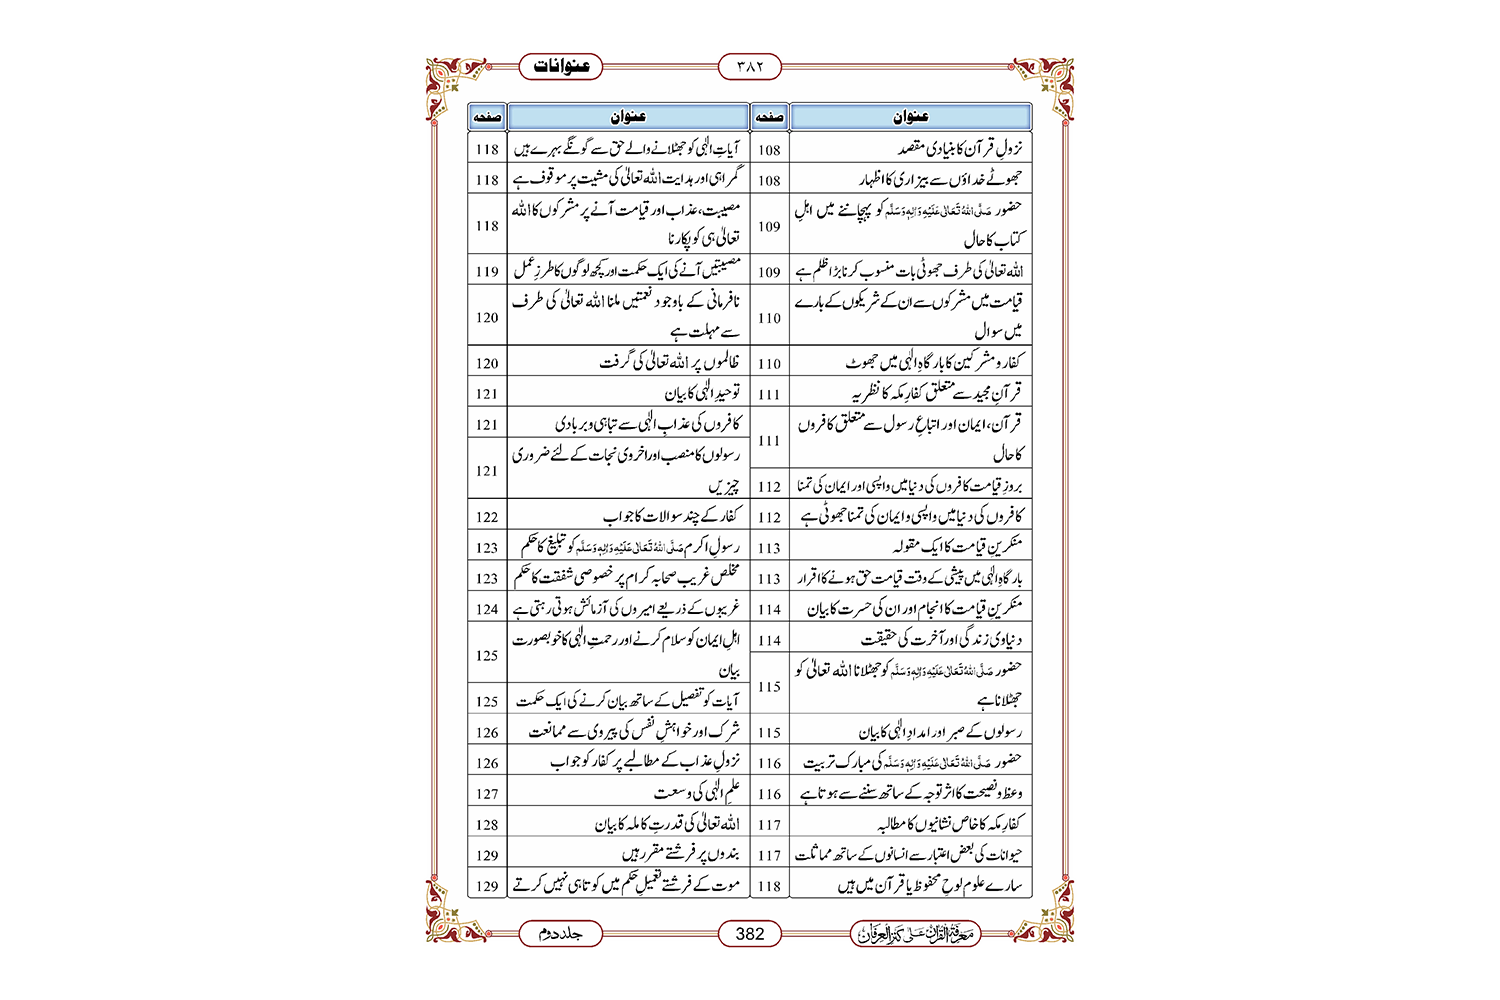 عنوانات
۳۸۲
عنوان
صفحہ
نزولِ قرآن کا بنیادی مقصد
108
جھوٹے خداؤں سے بیزاری کا اظہار
108
حضور صَلَّی اللہُ تَعَالٰی عَلَیْہِ وَاٰلِہٖ وَسَلَّم کو پہچاننے میں اہلِ
کتاب کا حال
109
اللہ تعالیٰ کی طرف جھوٹی بات منسوب کرنا بڑا ظلم ہے
109
قیامت میں مشرکوں سے ان کے شریکوں کے بارے
میں سوال
110
کفار و مشرکین کا بارگاہِ الٰہی میں جھوٹ
110
قرآنِ مجید سے متعلق کفارِ مکہ کا نظریہ
111
قرآن، ایمان اور اتباعِ رسول سے متعلق کافروں
کا حال
111
بروزِ قیامت کافروں کی دنیا میں واپسی اور ایمان کی تمنا
112
کافروں کی دنیا میں واپسی و ایمان کی تمنا جھوٹی ہے
112
منکرینِ قیامت کا ایک مقولہ
113
بارگاہِ الٰہی میں پیشی کے وقت قیامت حق ہونے کا اقرار
113
منکرینِ قیامت کا انجام اور ان کی حسرت کا بیان
114
دنیاوی زندگی اور آخرت کی حقیقت
114
حضور صَلَّی اللہُ تَعَالٰی عَلَیْہِ وَاٰلِہٖ وَسَلَّم کو جھٹلانا اللہ تعالیٰ کو
جھٹلانا ہے
115
رسولوں کے صبر اور امدادِ الٰہی کا بیان
115
حضور صَلَّی اللہُ تَعَالٰی عَلَیْہِ وَاٰلِہٖ وَسَلَّم کی مبارک تربیت
116
وعظ و نصیحت کا اثر توجہ کے ساتھ سننے سے ہوتا ہے
116
کفارِ مکہ کا خاص نشانیوں کا مطالبہ
117
حیوانات کی بعض اعتبار سے انسانوں کے ساتھ مماثلت
117
سارے علوم لوحِ محفوظ یا قرآن میں ہیں
118
عنوان
صفحہ
آیاتِ الٰہی کو جھٹلانے والے حق سے گونگے بہرے ہیں
118
گمراہی اور ہدایت اللہ تعالیٰ کی مشیت پر موقوف ہے
118
مصیبت، عذاب اور قیامت آنے پر مشرکوں کا اللہ
تعالیٰ ہی کو پکارنا
118
مصیبتیں آنے کی ایک حکمت اور کچھ لوگوں کا طرزِ عمل
119
نافرمانی کے باوجود نعمتیں ملنا اللہ تعالیٰ کی طرف
سے مہلت ہے
120
ظالموں پر اللہ تعالیٰ کی گرفت
120
توحیدِ الٰہی کا بیان
121
کافروں کی عذابِ الٰہی سے تباہی و بربادی
121
رسولوں کا منصب اور اخروی نجات کے لئے ضروری
چیزیں
121
کفار کے چند سوالات کا جواب
122
رسولِ اکرم صَلَّی اللہُ تَعَالٰی عَلَیْہِ وَاٰلِہٖ وَسَلَّم کو تبلیغ کا حکم
123
مخلص غریب صحابہ کرام پر خصوصی شفقت کا حکم
123
غریبوں کے ذریعے امیروں کی آزمائش ہوتی رہتی ہے
124
اہلِ ایمان کو سلام کرنے اور رحمتِ الٰہی کا خوبصورت
بیان
125
آیات کو تفصیل کے ساتھ بیان کرنے کی ایک حکمت
125
شرک اور خواہشِ نفس کی پیروی سے ممانعت
126
نزولِ عذاب کے مطالبے پر کفار کو جواب
126
علمِ الٰہی کی وسعت
127
اللہ تعالیٰ کی قدرتِ کاملہ کا بیان
128
بندوں پر فرشتے مقرر ہیں
129
موت کے فرشتے تعمیلِ حکم میں کوتاہی نہیں کرتے
129
معرفۃ القرآن علٰی کنز العرفان
382
جلد دوم